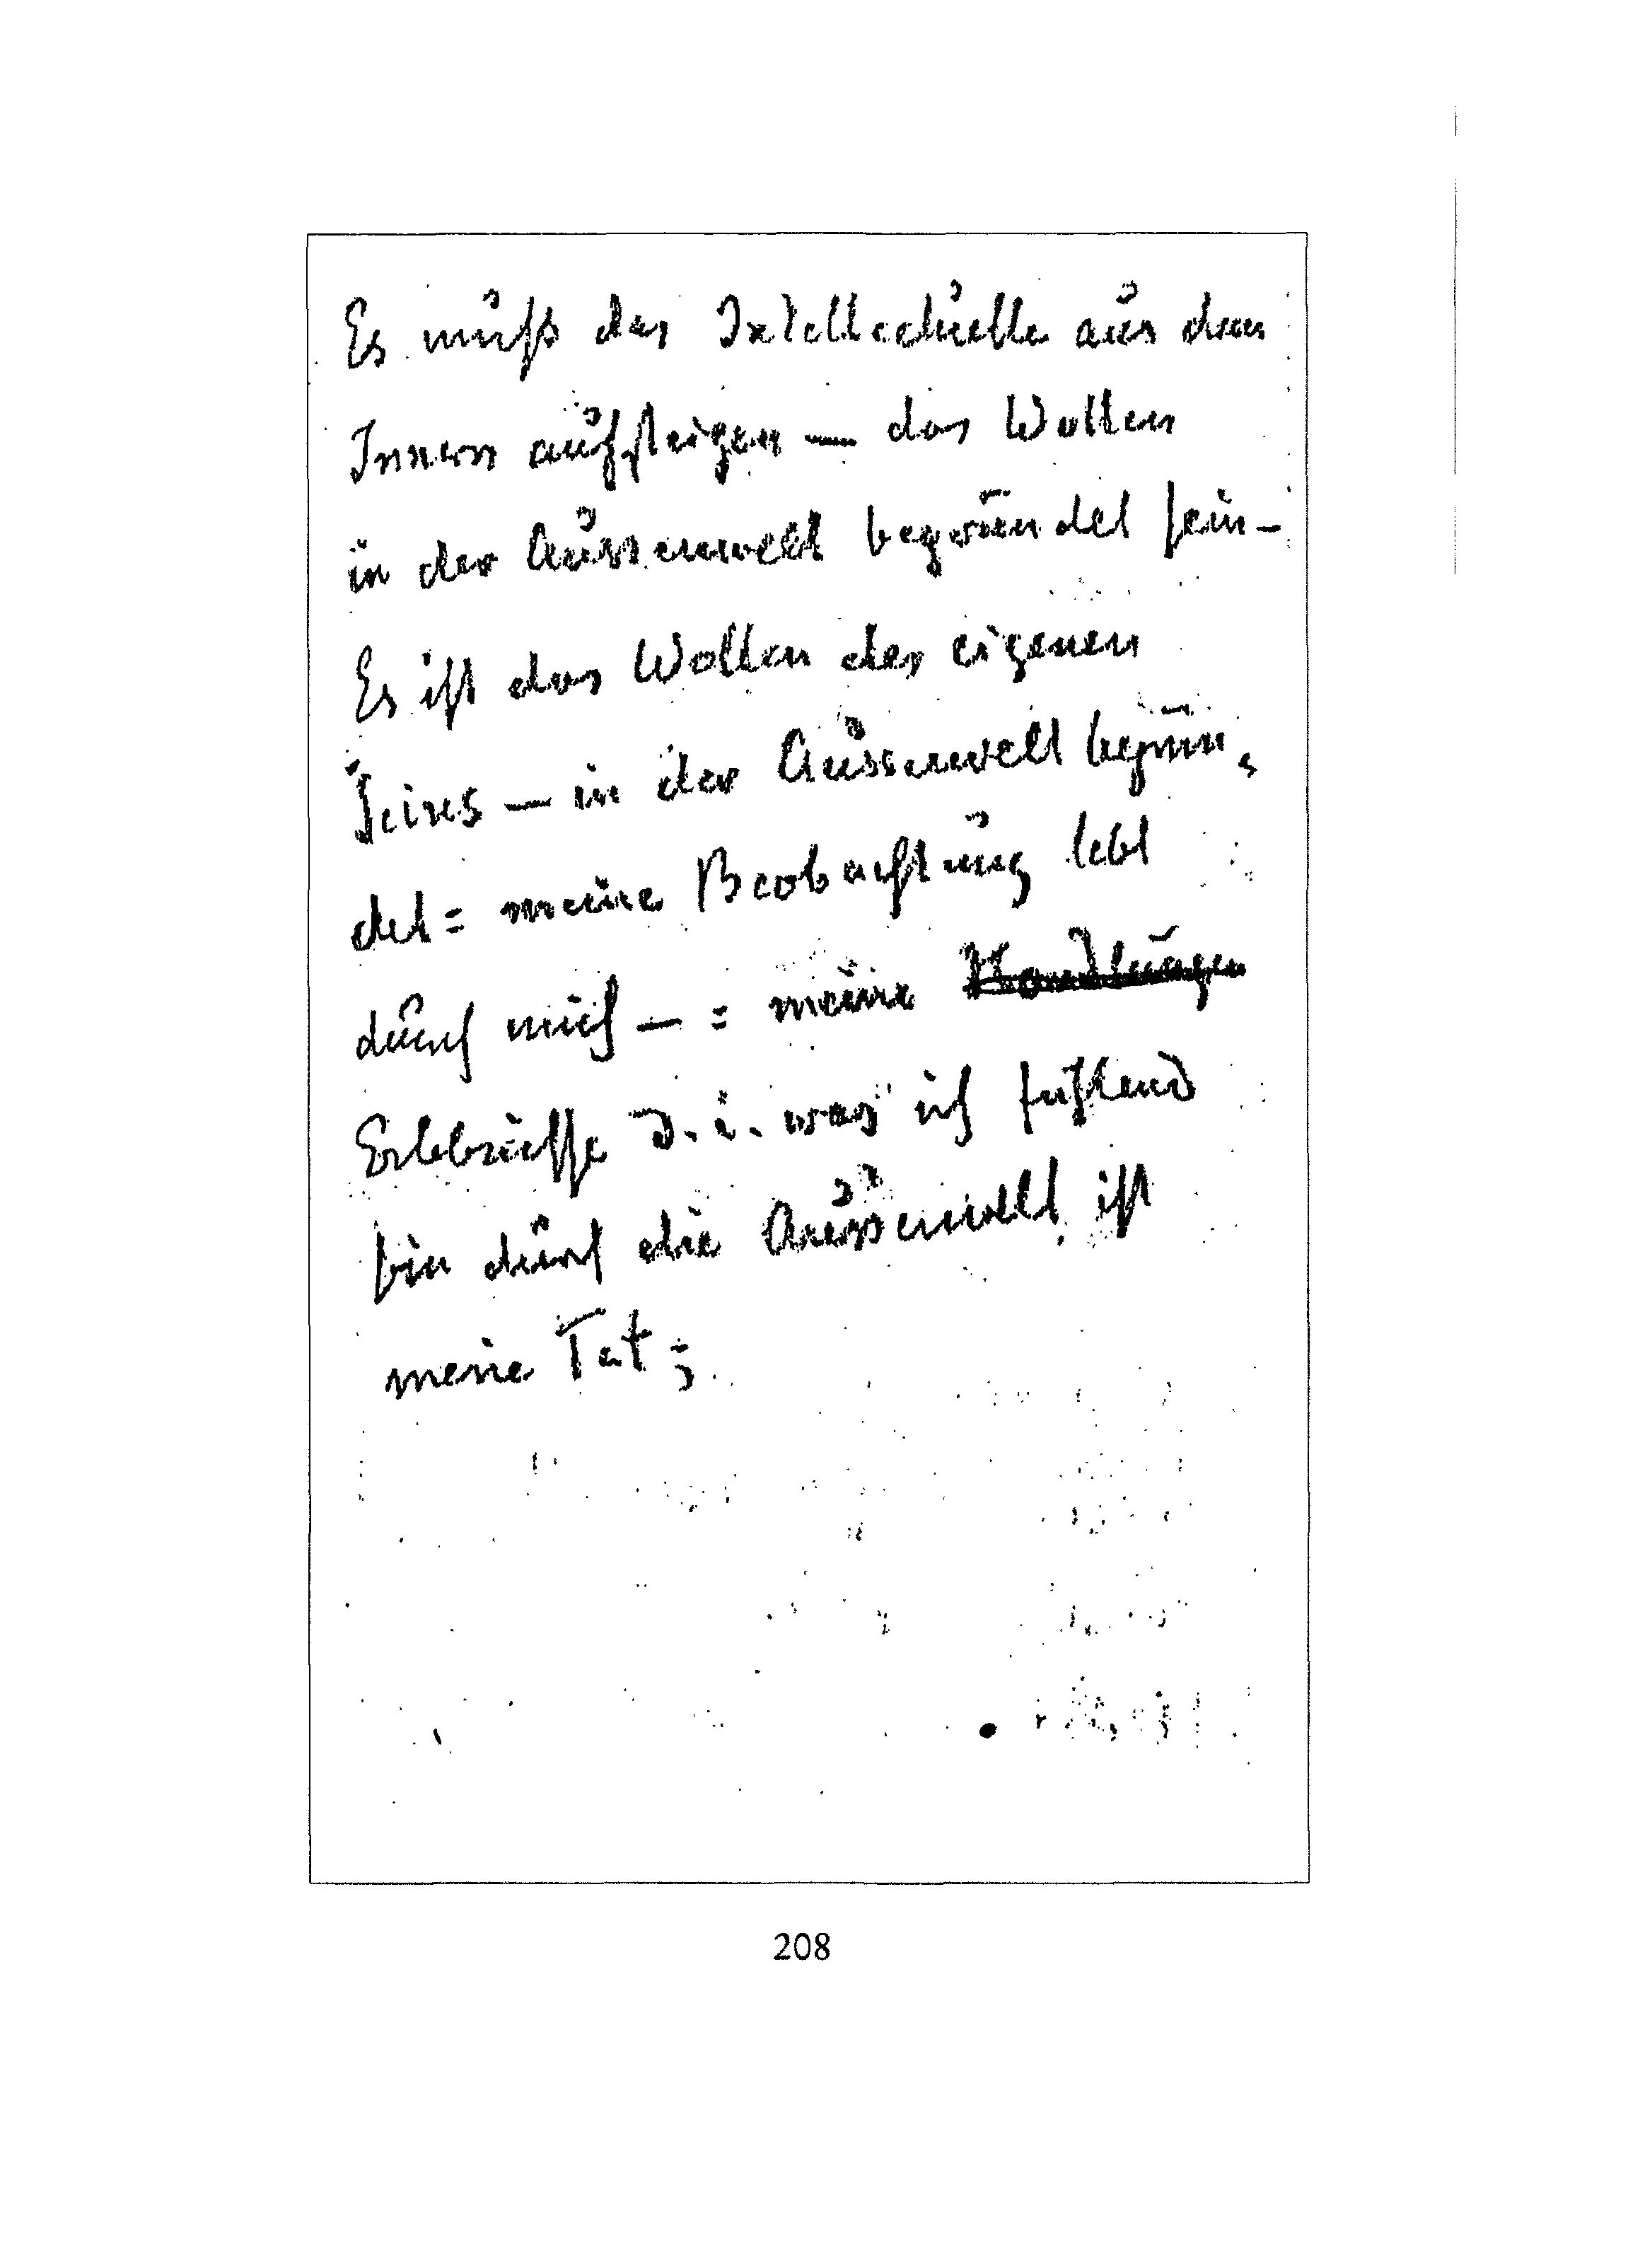 Es muß das Intellectuelle aus dem
Innern aufsteigen — das Wollen
in der Aussenwelt begründet sein –
Es ist das Wollen des eigenen
Seines — in der Aussenwelt begrün-
det = meine Beobachtung lebt
durch mich — = meine Handlungen
Erlebnisse d. i. was ich fühlend
bin durch die Aussenwelt, ist
meine Tat;
208